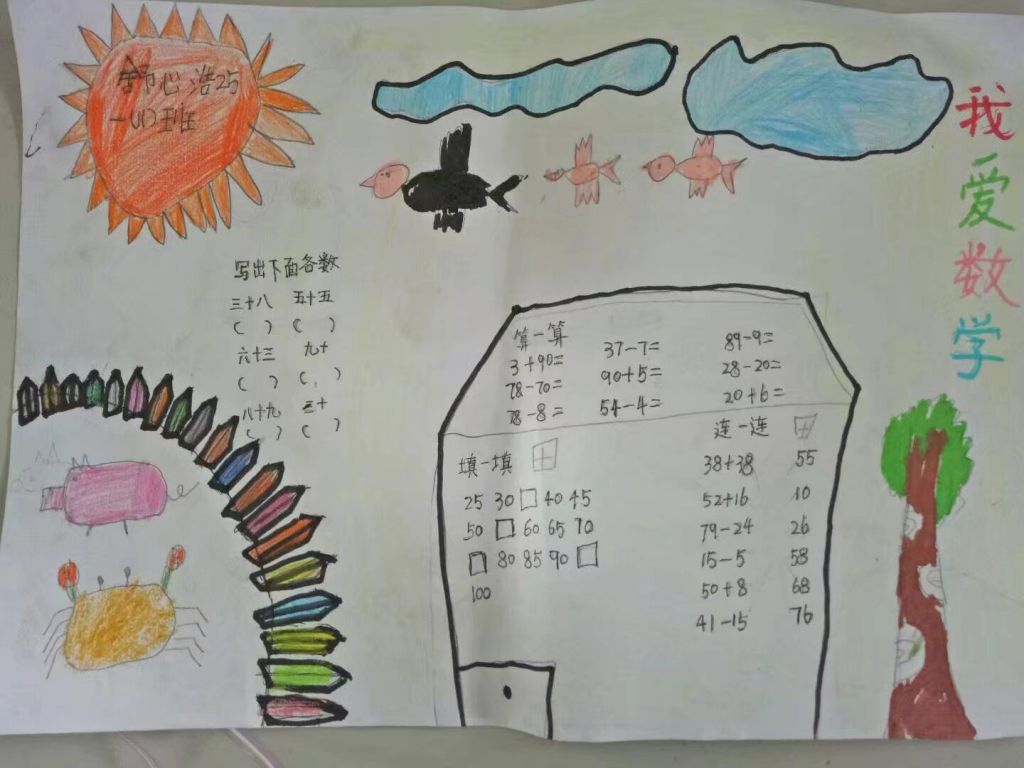 舒心浩25
一(1)班
我爱数学
写出下面各数
三十八 五十五
( ) ( )
六十三 九十
( ) ( )
八十九 三十
( ) ( )
算一算
3+90= 37-7= 89-9=
78-70= 90+5= 28-20=
78-8= 54-4= 20+6=
填一填
25 30 □ 40 45
50 □ 60 65 70
□ 80 85 90 □
100
连一连
38+38 55
52+16 10
79-24 26
15-5 58
50+8 68
41-15 76